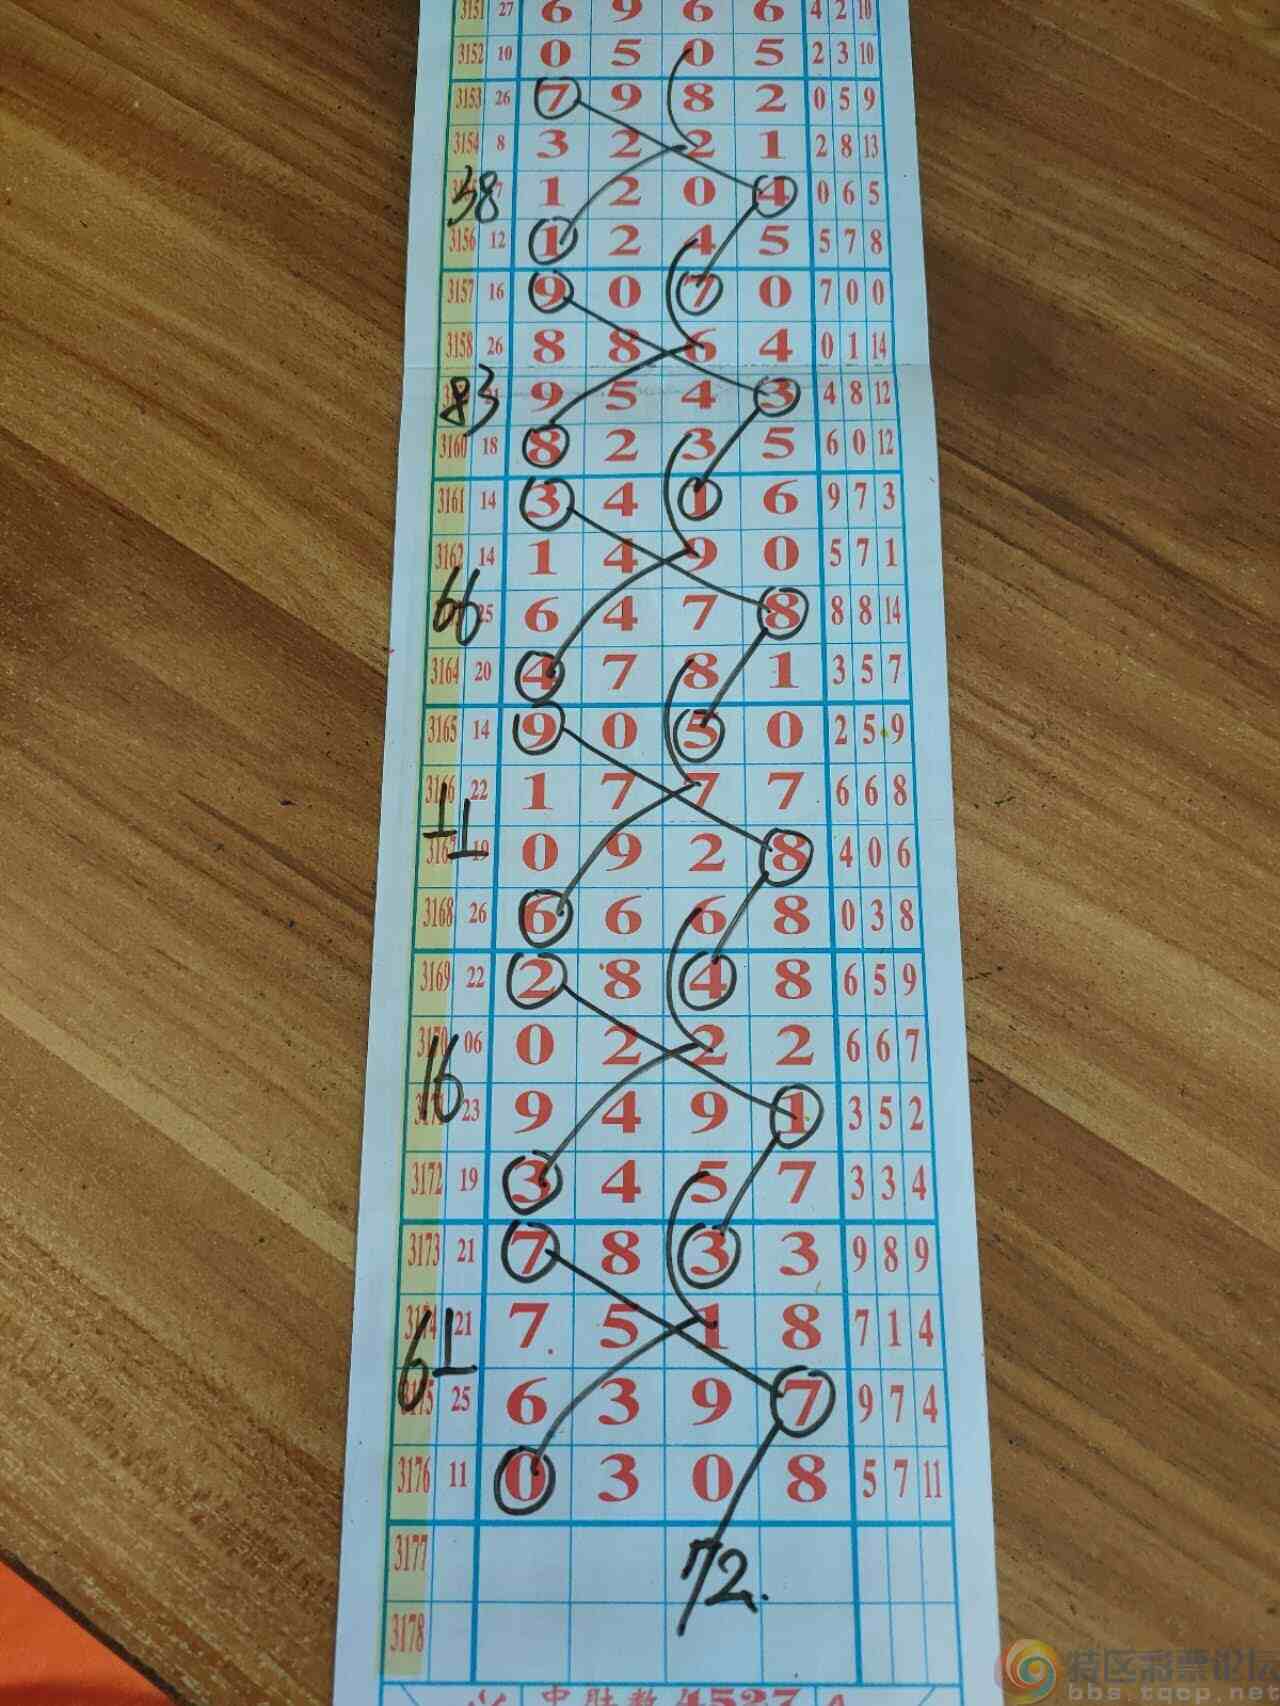 3151 27 6 9 6 6 4 2 10
3152 10 0 5 0 5 2 3 10
3153 26 7 9 8 2 0 5 9
3154 8 3 2 2 1 2 8 13
38 7 1 2 0 4 0 6 5
3156 12 1 2 4 5 5 7 8
3157 16 9 0 7 0 7 0 0
3158 26 8 8 6 4 0 1 14
83 9 5 4 3 4 8 12
3160 18 8 2 3 5 6 0 12
3161 14 3 4 1 6 9 7 3
3162 14 1 4 9 0 5 7 1
66 25 6 4 7 8 8 8 14
3164 20 4 7 8 1 3 5 7
3165 14 9 0 5 0 2 5 9
3166 22 1 7 7 7 6 6 8
11
3167 19 0 9 2 8 4 0 6
3168 26 6 6 6 8 0 3 8
3169 22 2 8 4 8 6 5 9
3170 06 0 2 2 2 6 6 7
16
3171 23 9 4 9 1 3 5 2
3172 19 3 4 5 7 3 3 4
3173 21 7 8 3 3 9 8 9
3174 21 7 5 1 8 7 1 4
61
3175 25 6 3 9 7 9 7 4
3176 11 0 3 0 8 5 7 11
3177
72.
3178
特区彩票论坛
bbs.tqcp.net